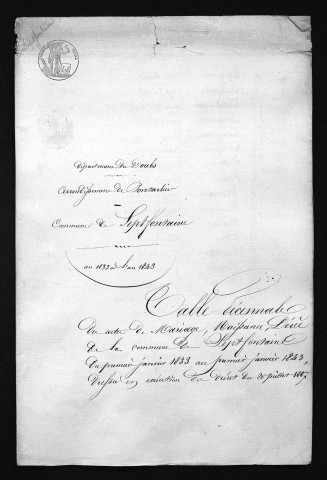 Septfontaine
Département du Doubs
Arrondissement de Pontarlier
Commune de Septfontaine
an 1833 à l'an 1843
Table décennale
des actes de Mariage, Naissance, Décès
de la commune de Septfontaine
du premier janvier 1833 au premier janvier 1843,
dressée en exécution du décret du 20 juillet 1807